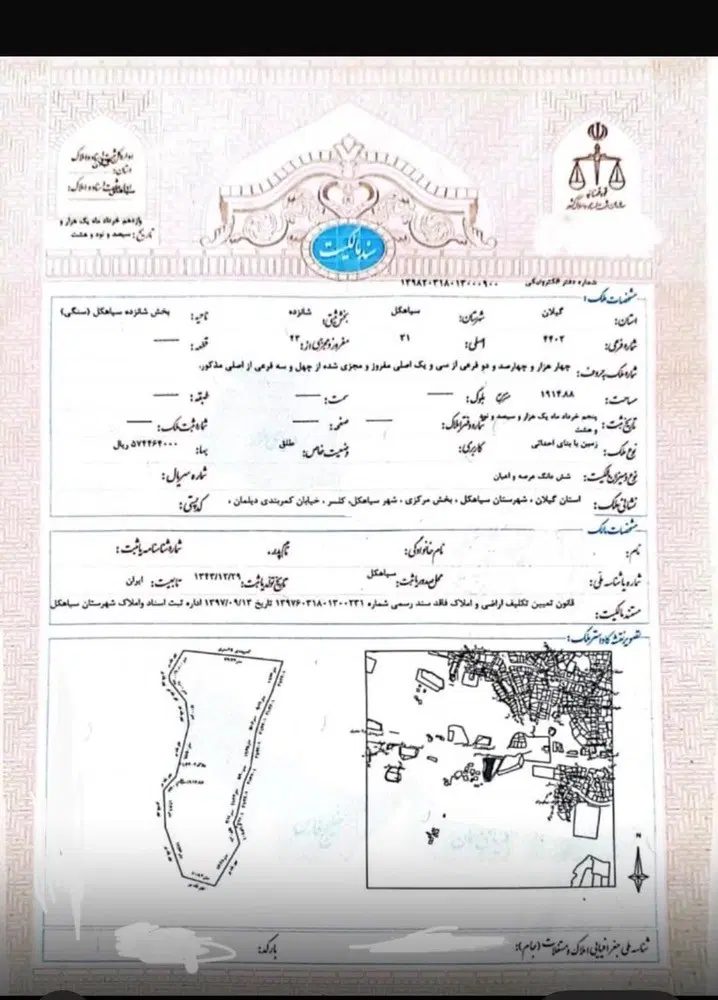 اداره کل ثبت اسناد و املاک
استان:
اداره ثبت اسناد و املاک:
تاریخ: یازدهم خرداد ماه یک هزار و سیصد و نود و هشت
قوه قضائیه
سازمان ثبت اسناد و املاک کشور
سند مالکیت
شماره دفتر الکترونیکی ۱۳۹۸۲۰۳۱۸۰۱۳۰۰۰۹۰۰
مشخصات ملک:
استان: گیلان شهرستان: سیاهکل بخش ثبتی: شانزده ناحیه: بخش شانزده سیاهکل (سنگی)
شماره فرعی: ۴۴۰۲ اصلی: ۳۱ مفروز و مجزی از: ۴۳ قطعه:
شماره ملک به حروف: چهار هزار و چهارصد و دو فرعی از سی و یک اصلی مفروز و مجزی شده از چهل و سه فرعی از اصلی مذکور.
مساحت: ۱۹۱۴.۸۸ مترمربع بلوک: سمت: طبقه:
تاریخ ثبت: پنجم خرداد ماه یک هزار و سیصد و نود و هشت شماره دفتر املاک: صفحه: شماره ثبت ملک:
نوع ملک: زمین با بنای احداثی کاربری: وضعیت خاص: طلق بها: ۵۷۴۴۶۴۰۰۰ ریال
نوع و میزان مالکیت: شش دانگ عرصه و اعیان شماره سریال:
نشانی ملک: استان گیلان ، شهرستان سیاهکل ، بخش مرکزی ، شهر سیاهکل، کلسر ، خیابان کمربندی دیلمان ، کد پستی:
مشخصات مالک:
نام: نام خانوادگی: نام پدر: شماره شناسنامه یا ثبت:
شماره یا شناسه ملی: محل صدور یا ثبت: سیاهکل تاریخ تولد یا ثبت: ۱۳۴۳/۱۲/۲۹ تابعیت: ایران
مستند مالکیت: قانون تعیین تکلیف اراضی و املاک فاقد سند رسمی شماره ۱۳۹۷۶۰۳۱۸۰۱۳۰۰۲۳۱ تاریخ ۱۳۹۷/۰۹/۱۳ اداره ثبت اسناد واملاک شهرستان سیاهکل
تصویر نقشه کاداستر ملک:
N
شناسه ملی جغرافیایی املاک و مستغلات (جام): بارکد: